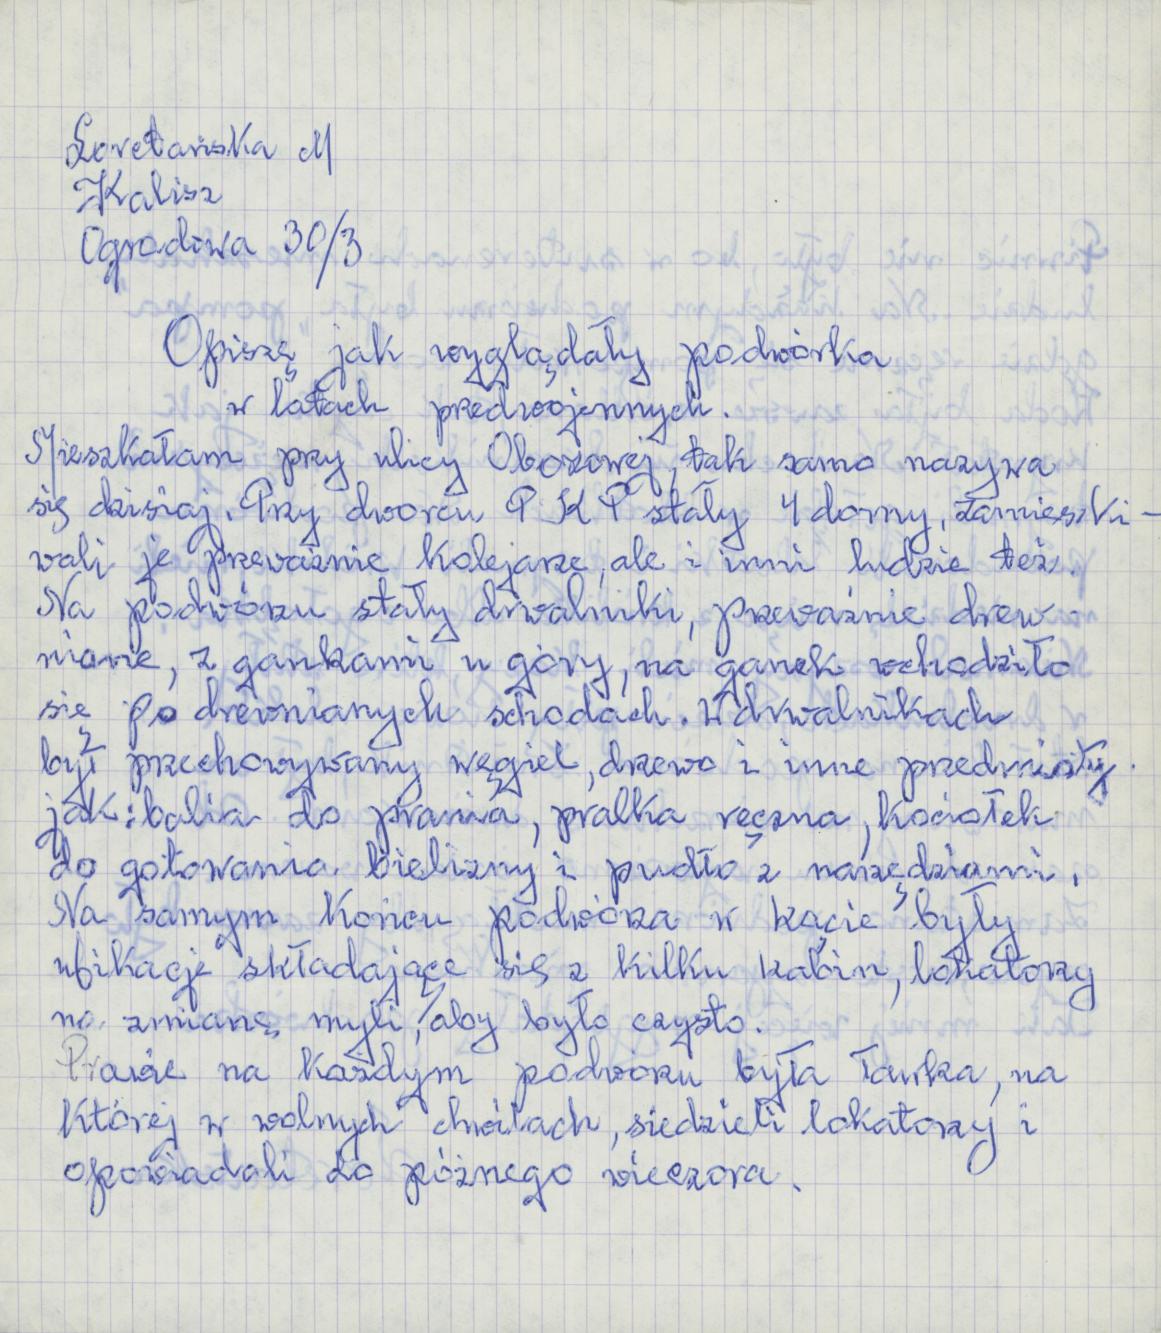 Loretańska M
Kalisz
Ogrodowa 30/3
Opiszę jak wyglądały podwórka
w latach przedwojennych.
Mieszkałam przy ulicy Obozowej, tak samo nazywa
się dzisiaj. Przy dworcu PKP stały 4 domy, zamieszki-
wali je przeważnie kolejarze, ale i inni ludzie też.
Na podwórzu stały drwalniki, przeważnie drew-
niane, z gankami u góry, na ganek wchodziło
się po drewnianych schodach. W drwalnikach
był przechowywany węgiel, drzewo i inne przedmioty.
jak: balia do prania, pralka ręczna, kociołek
do gotowania bielizny i pudło z narzędziami.
Na samym końcu podwórza w kącie były
ubikacje składające się z kilku kabin, lokatorzy
na zmianę myli, aby było czysto.
Prawie na każdym podwórzu była ławka, na
której w wolnych chwilach, siedzieli lokatorzy i
opowiadali do późnego wieczora.